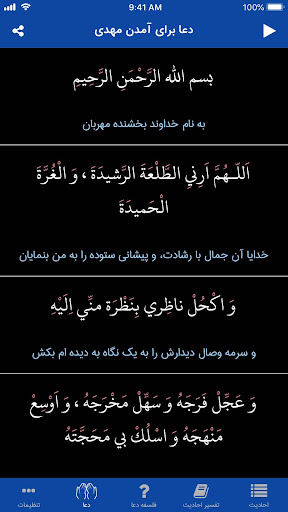 9:41 AM
دعا برای آمدن مهدی
بسم الله الرَّحْمَنِ الرَّحِيمِ
به نام خداوند بخشنده مهربان
اَللّـهُمَّ اَرِنيِ الطَّلْعَةَ الرَّشيدَةَ ، وَ الْغُرَّةَ
الْحَميدَةَ
خدایا آن جمال با رشادت، و پیشانی ستوده را به من بنمایان
وَ اكْحُلْ ناظِري بِنَظْرَة منِّي اِلَيْهِ
و سرمه وصال دیدارش را به یک نگاه به دیده ام بکش
وَ عَجِّلْ فَرَجَهُ وَ سَهِّلْ مَخْرَجَهُ ، وَ اَوْسِعْ
مَنْهَجَهُ وَ اسْلُكْ بي مَحَجَّتَهُ
احادیث
تفسیر احادیث
فلسفه دعا
دعا
تنظیمات